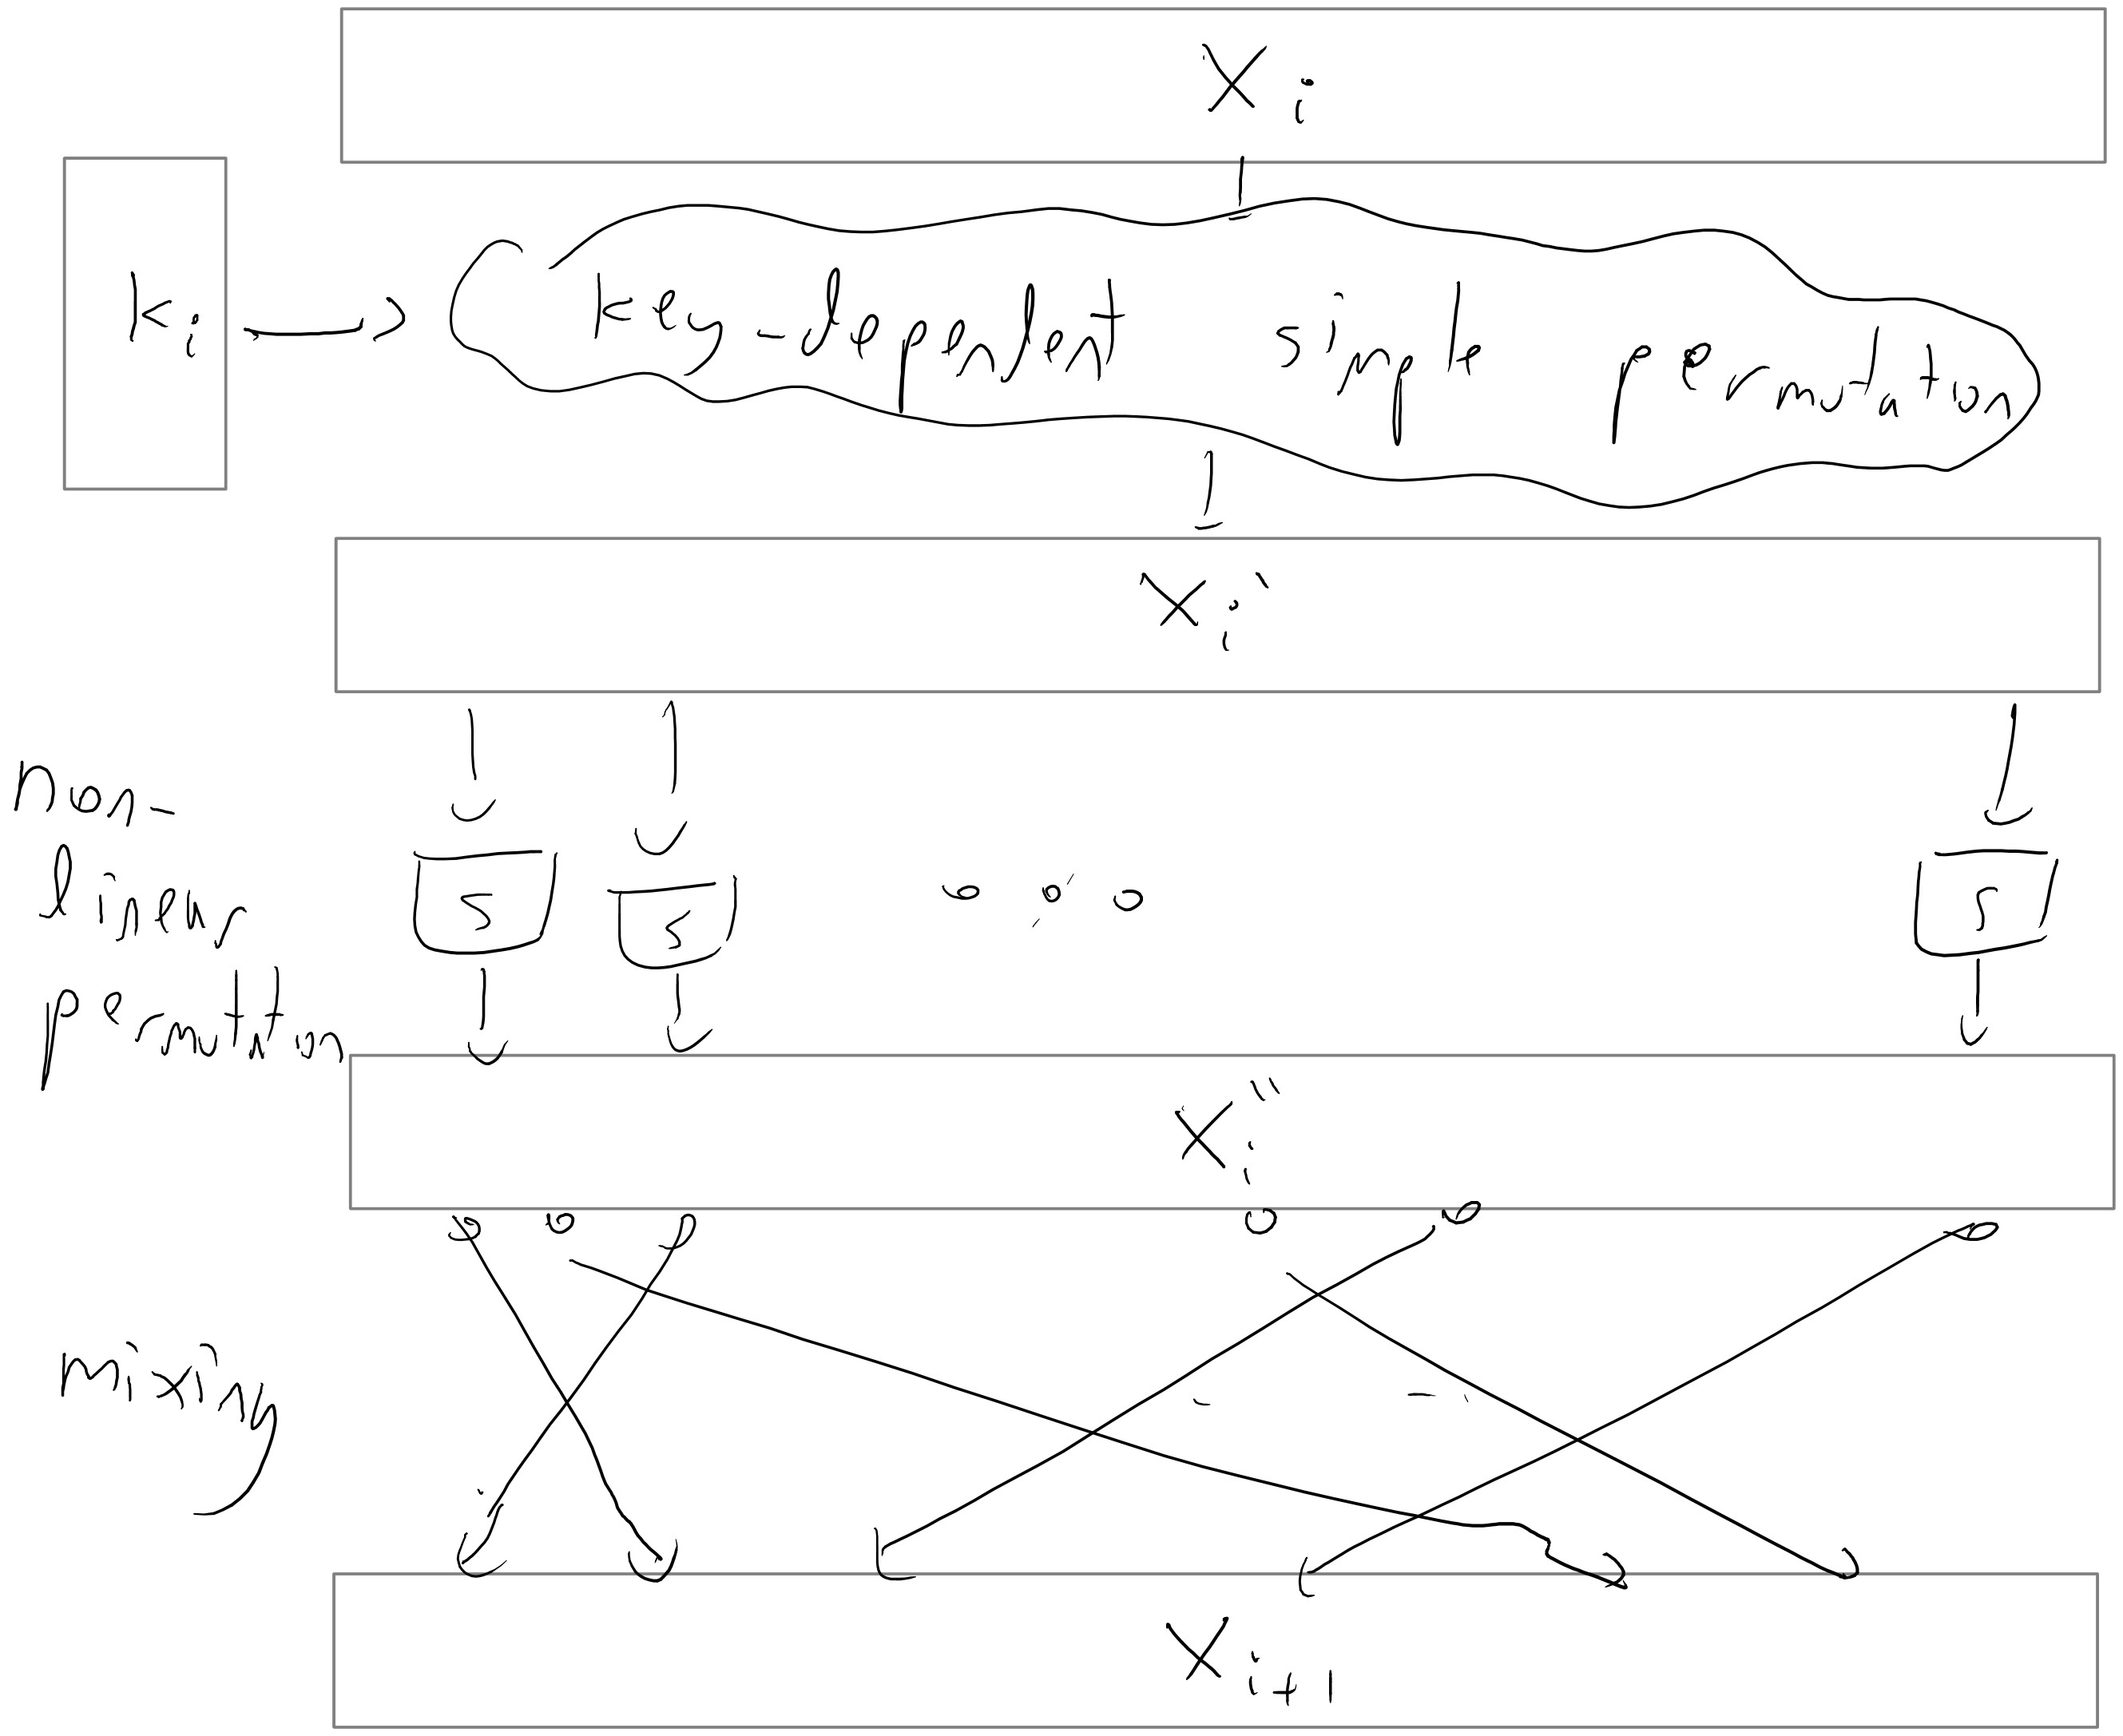 Xi
ki
key-dependent simple permutation
Xi'
non-
linear
permutation
S S S
Xi''
mixing
Xi+1